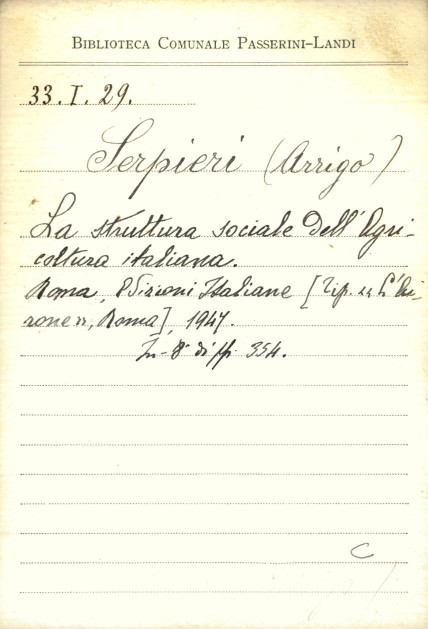 BIBLIOTECA COMUNALE PASSERINI-LANDI
33. I. 29.
Serpieri (Arrigo)
La struttura sociale dell'Agri-
coltura italiana.
Roma, Edizioni Italiane [Tip. « L'Ai-
rone », Roma], 1947.
In-8° di pp. 354.
C